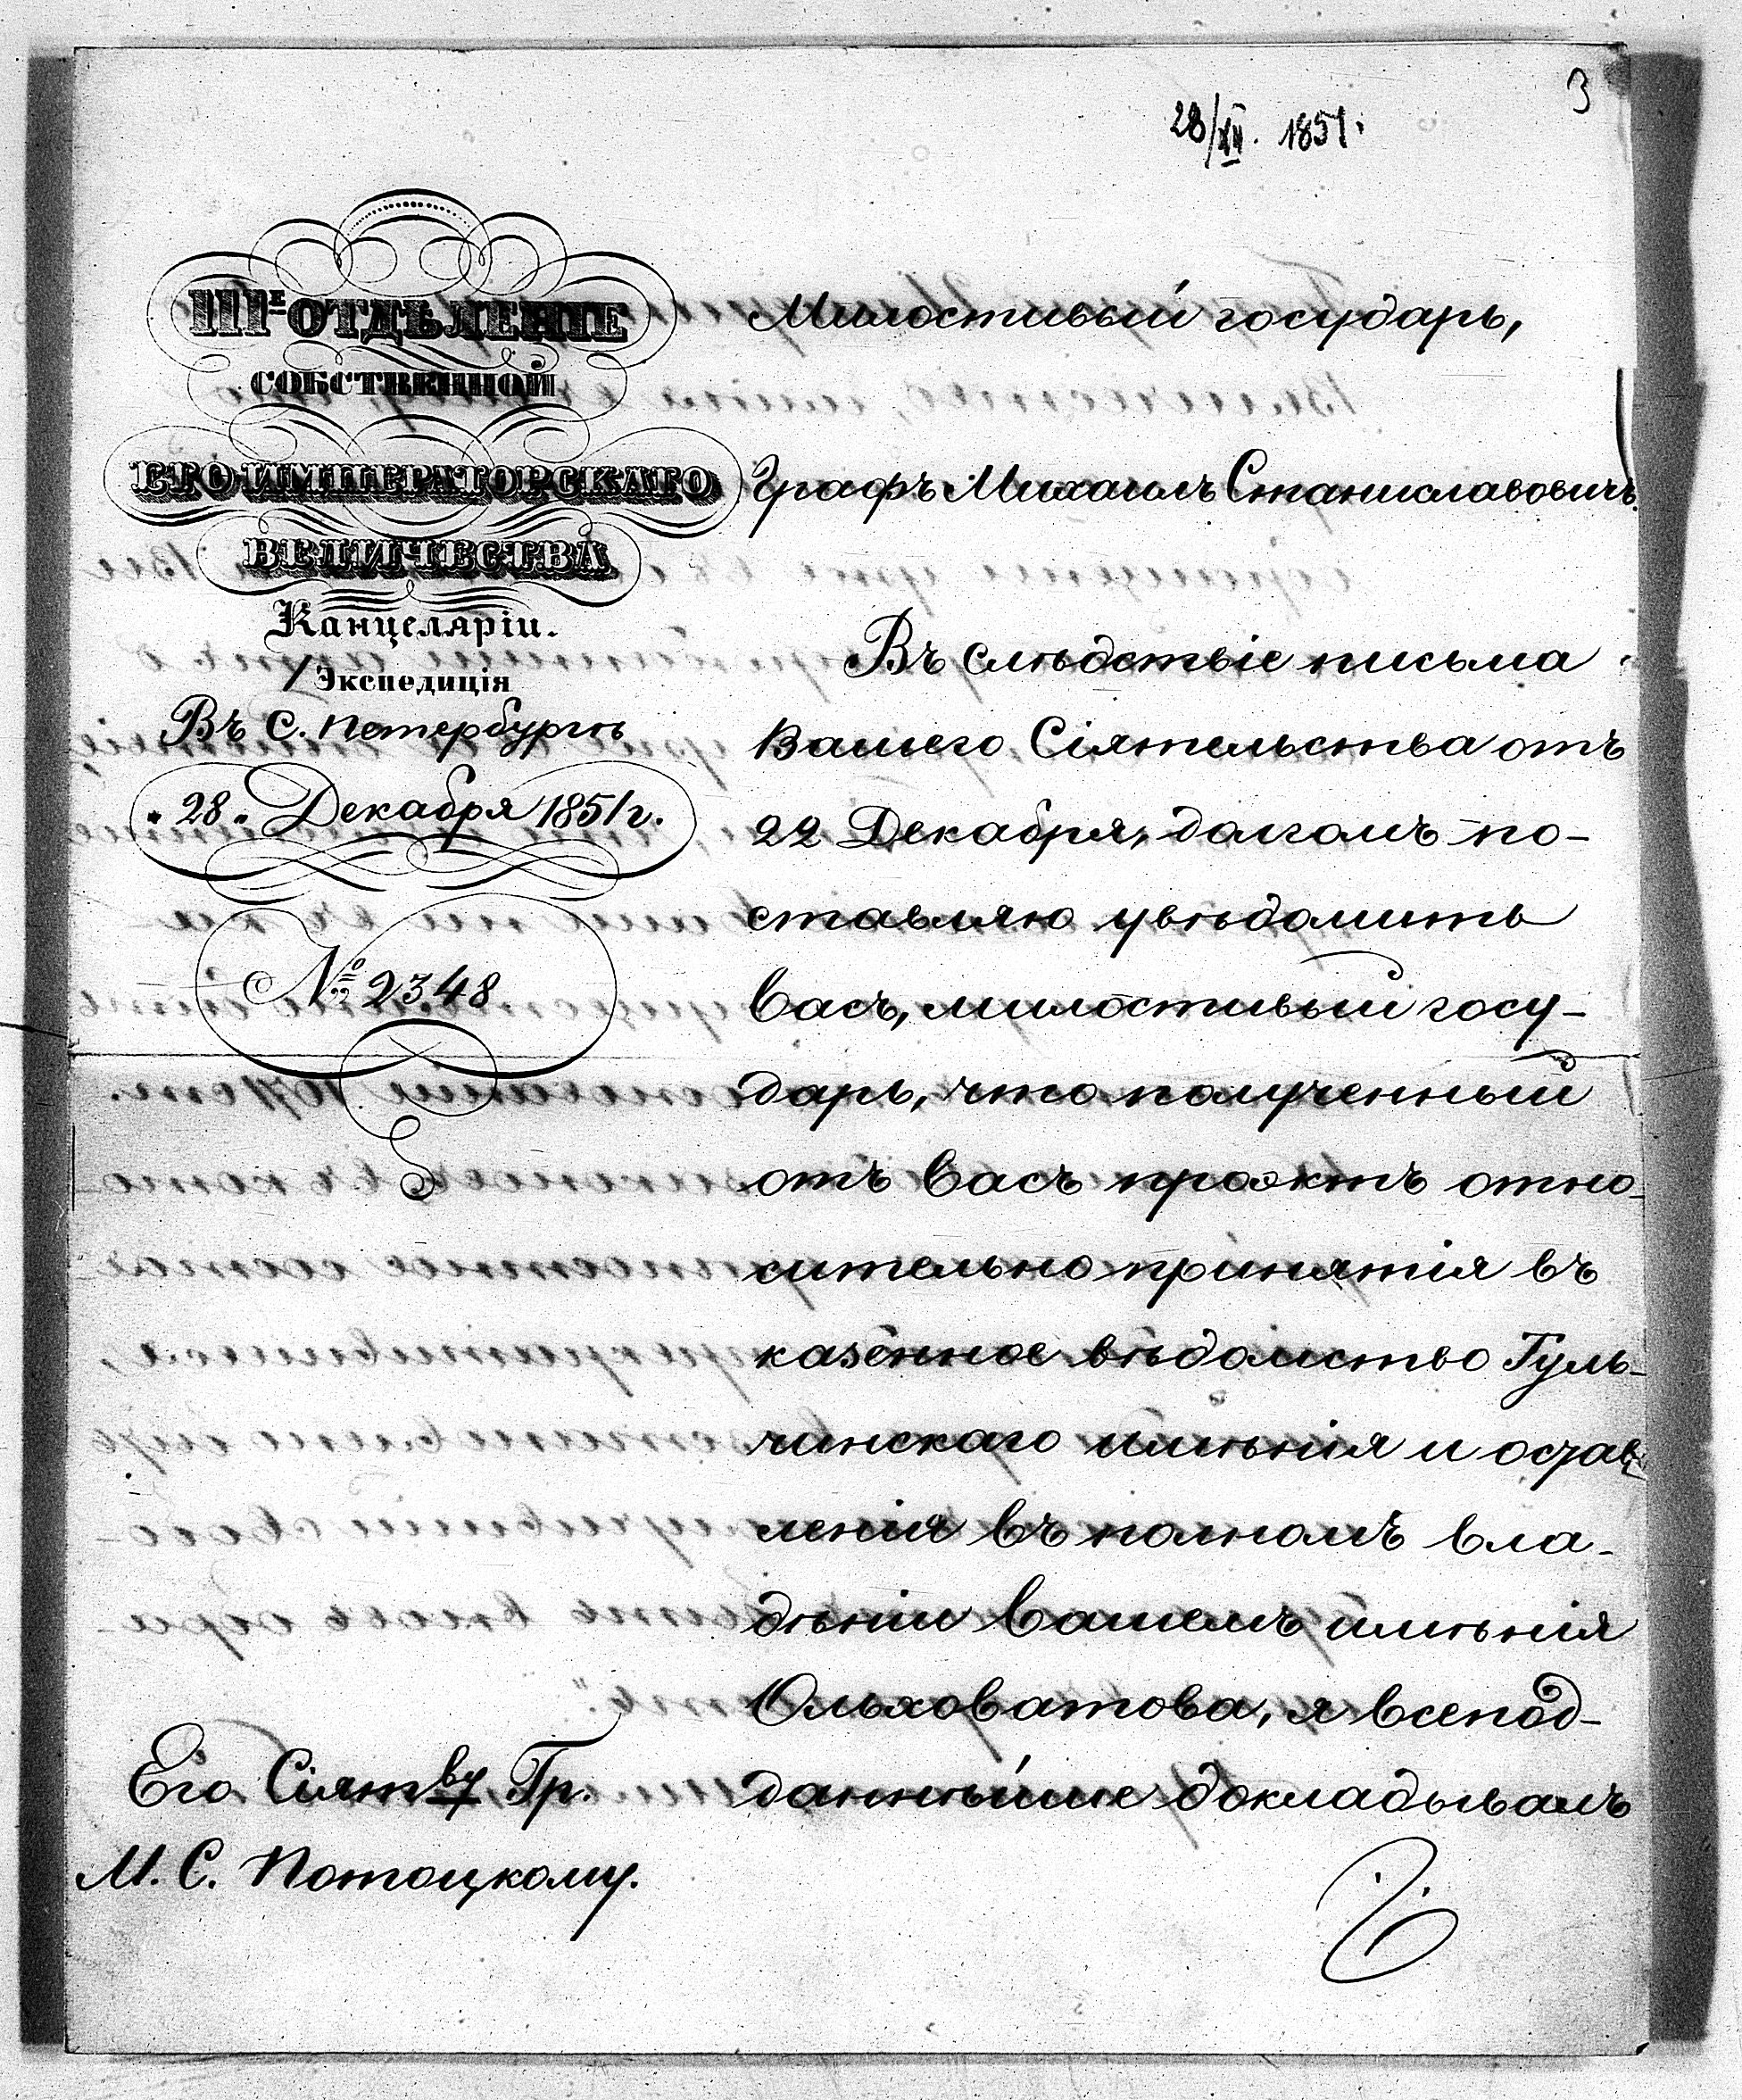 3
28/XII. 1851.
IIIЕ ОТДѢЛЕНІЕ
СОБСТВЕННОЙ
ЕГО ИМПЕРАТОРСКАГО
ВЕЛИЧЕСТВА
Канцеляріи.
1 Экспедиція
Въ С. Петербургѣ
„28„ Декабря 1851 г.
№ 2348
Милостивый государь,
Графъ Михаилъ Станиславовичъ.
Въ слѣдствіе письма
Вашего Сіятельства отъ
22 Декабря, долгомъ по-
ставляю увѣдомить
Васъ, милостивый госу-
дарь, что полученный
отъ Васъ проэктъ отно-
сительно принятія въ
казенное вѣдомство Туль-
чинскаго имѣнія и остав-
ленія въ полномъ вла-
дѣніи Вашемъ имѣнія
Ольховатова, я всепод-
даннѣйше докладывалъ
Его Сіятву Гр.
М. С. Потоцкому.